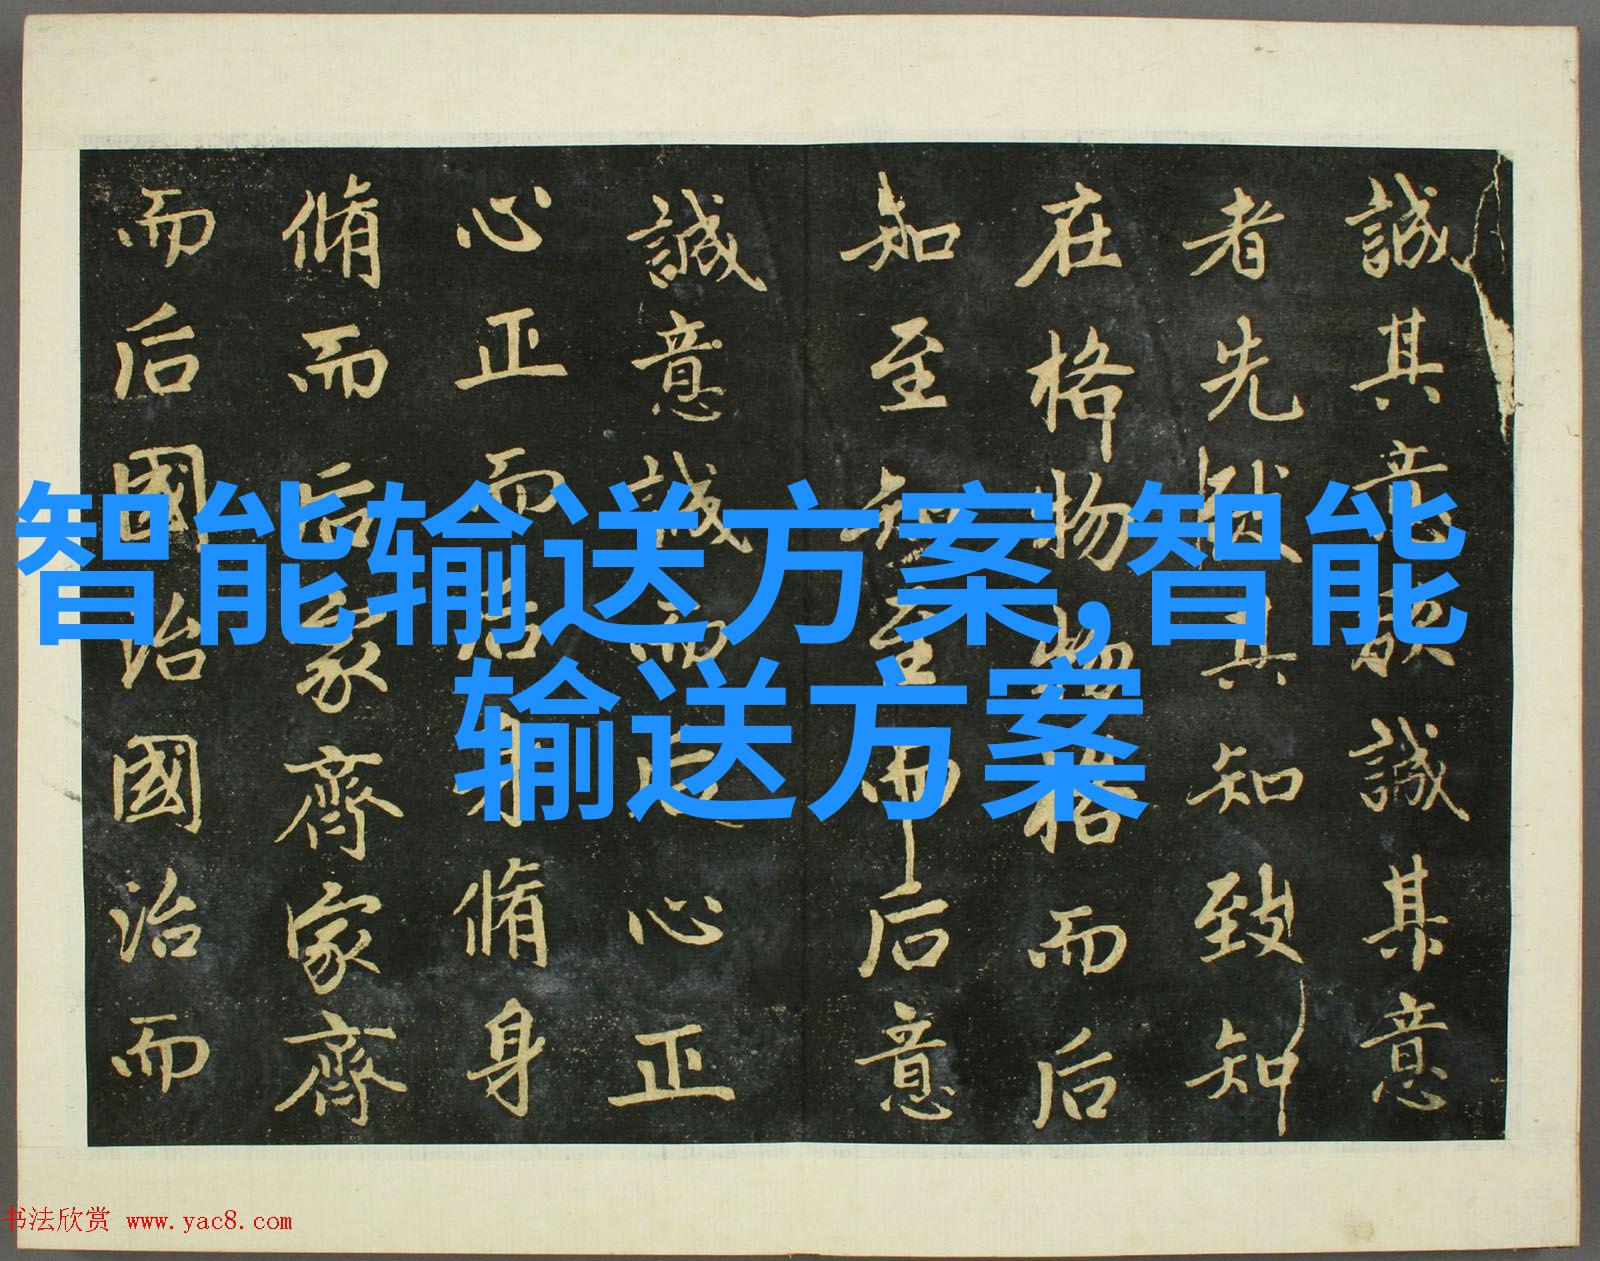 誠其意欲誠其意
者先致其知致知
在格物物格而后
知至知至而后意
誠意誠而后心正
心正而后身脩身
脩而后家齊家齊
而后國治國治而
智能输送方案,智能
输送方案
书法欣赏 www.yac8.com